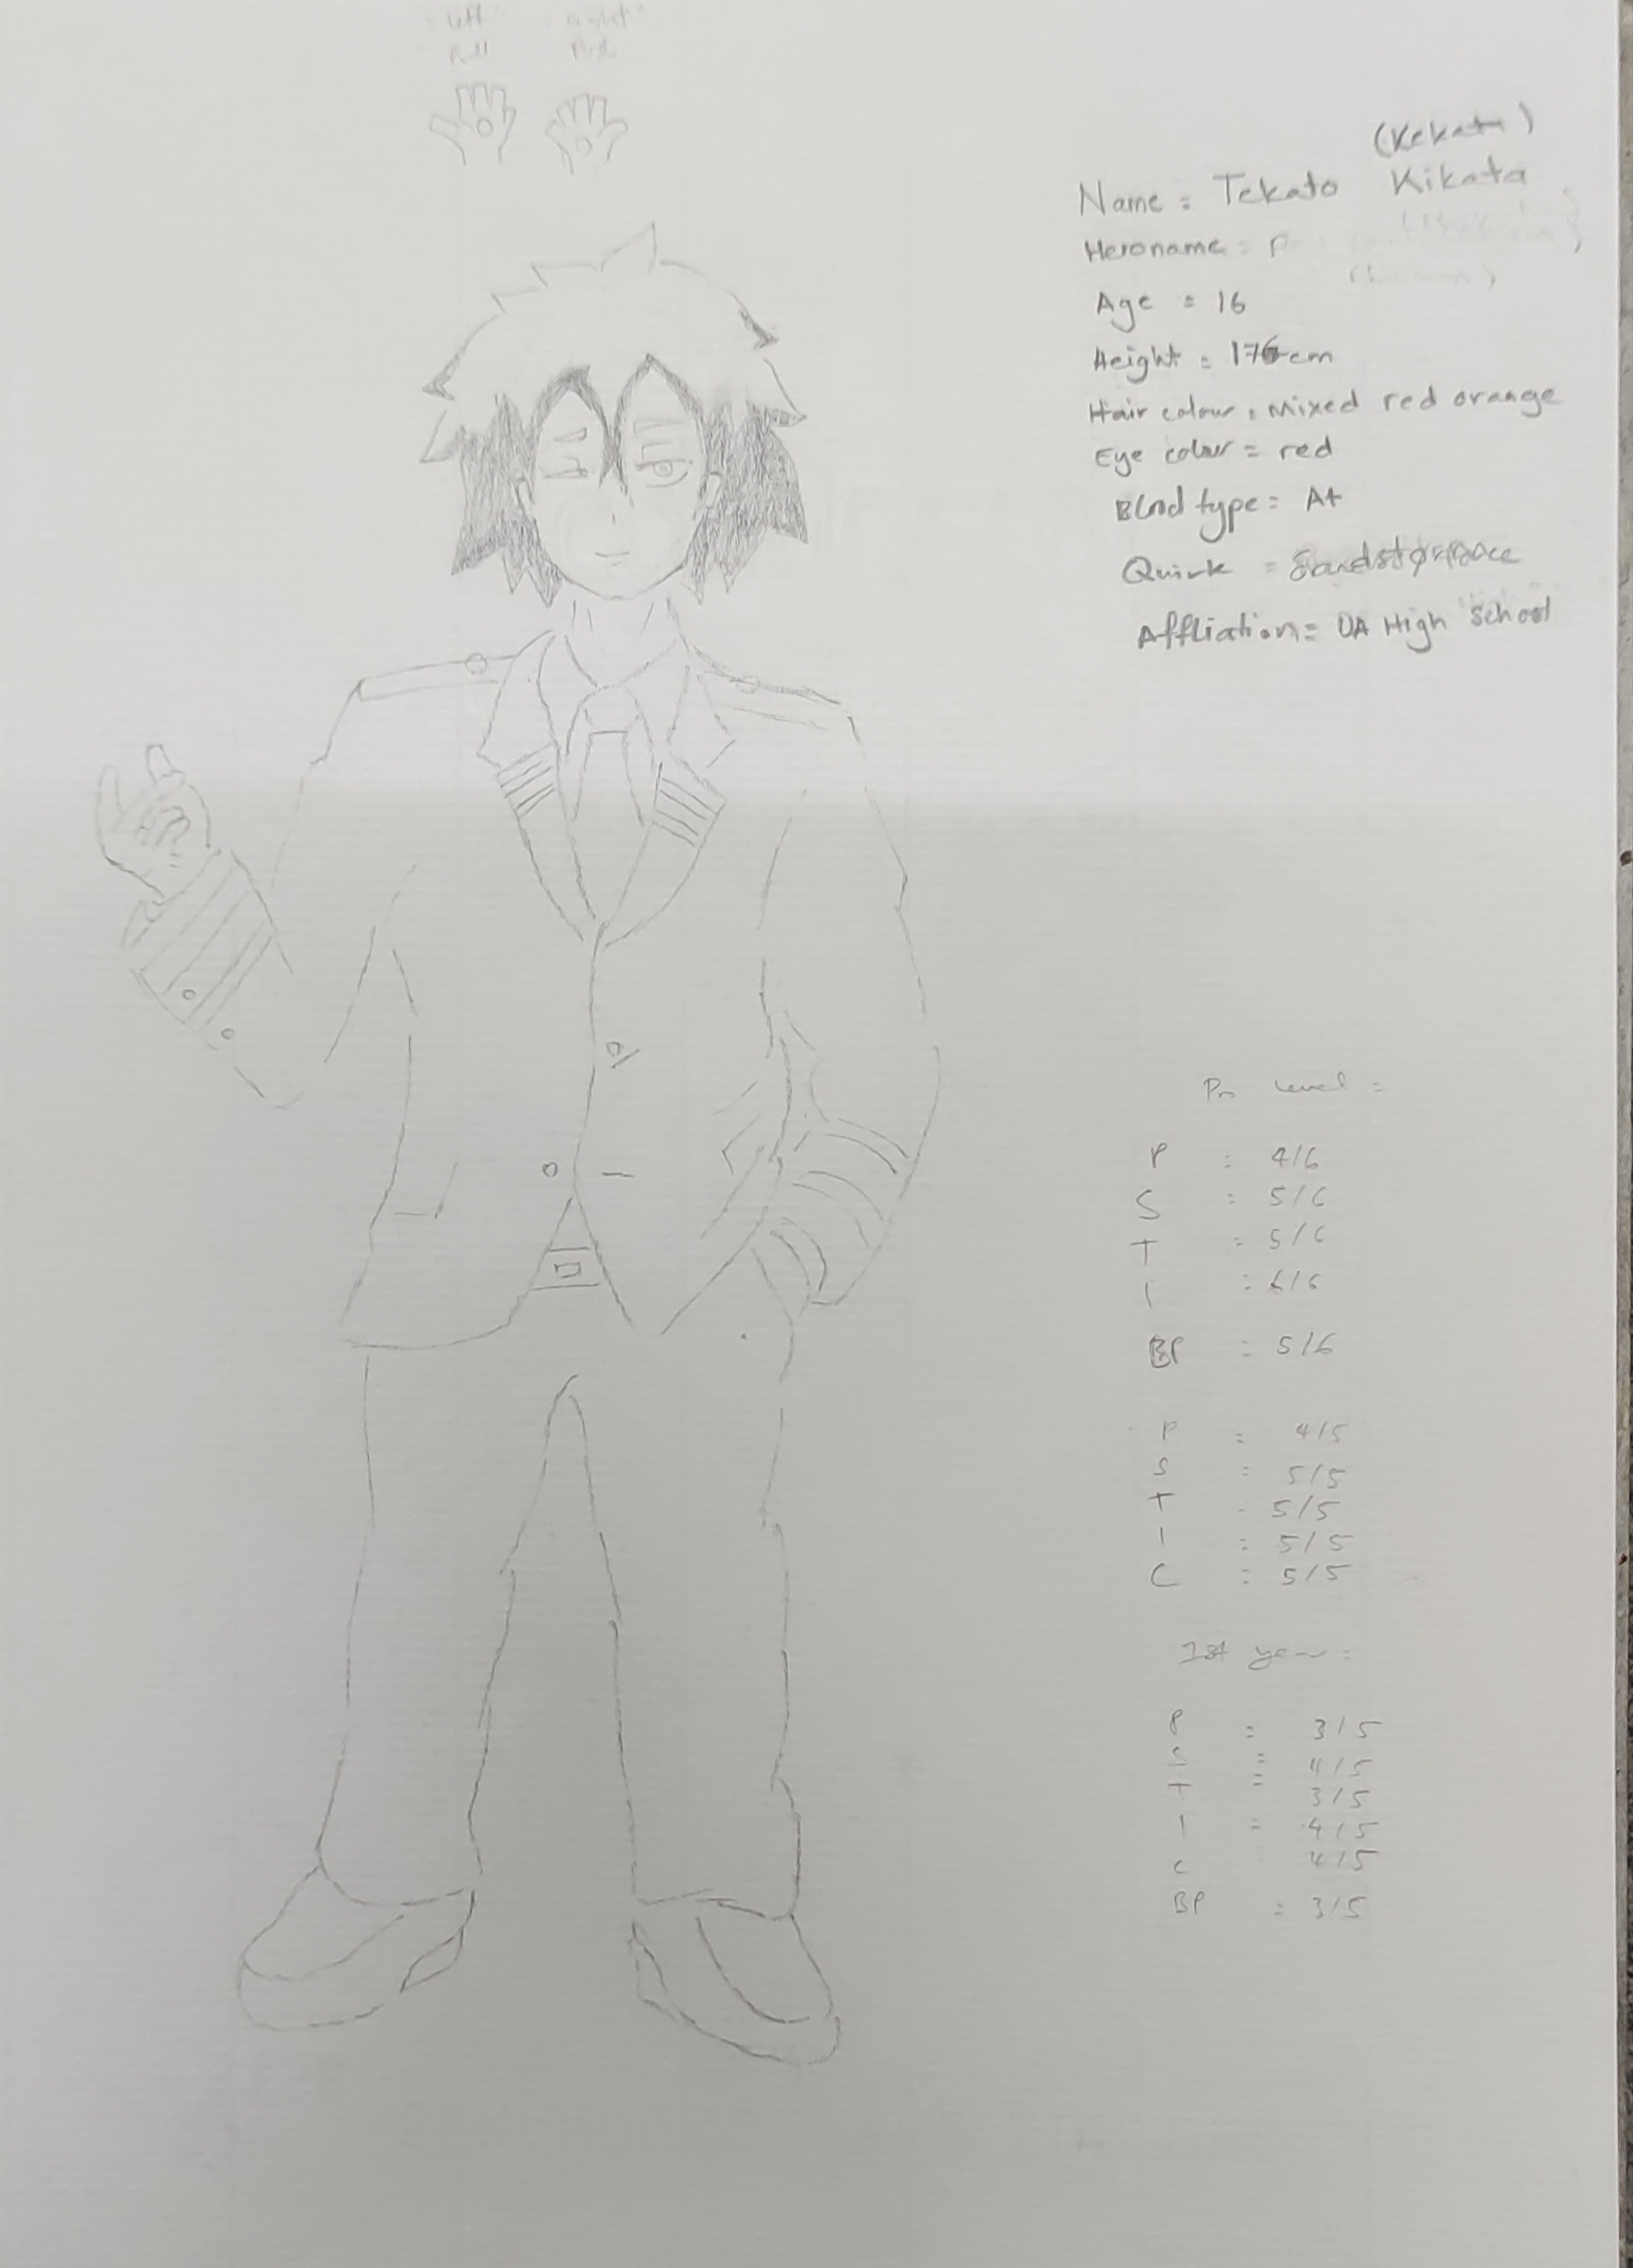 left right
Pull Push
(Kekata)
Name = Tekato Kikata
Heroname =
Age = 16
Height = 176cm
Hair colour = Mixed red orange
Eye colour = red
Blood type = A+
Quirk =
Affliation = UA High School
Pro Level =
P = 4/6
S = 5/6
T = 5/6
I = 6/6
BP = 5/6
P = 4/5
S = 5/5
T = 5/5
I = 5/5
C = 5/5
1st year =
P = 3/5
S = 4/5
T = 3/5
I = 4/5
C 4/5
BP = 3/5